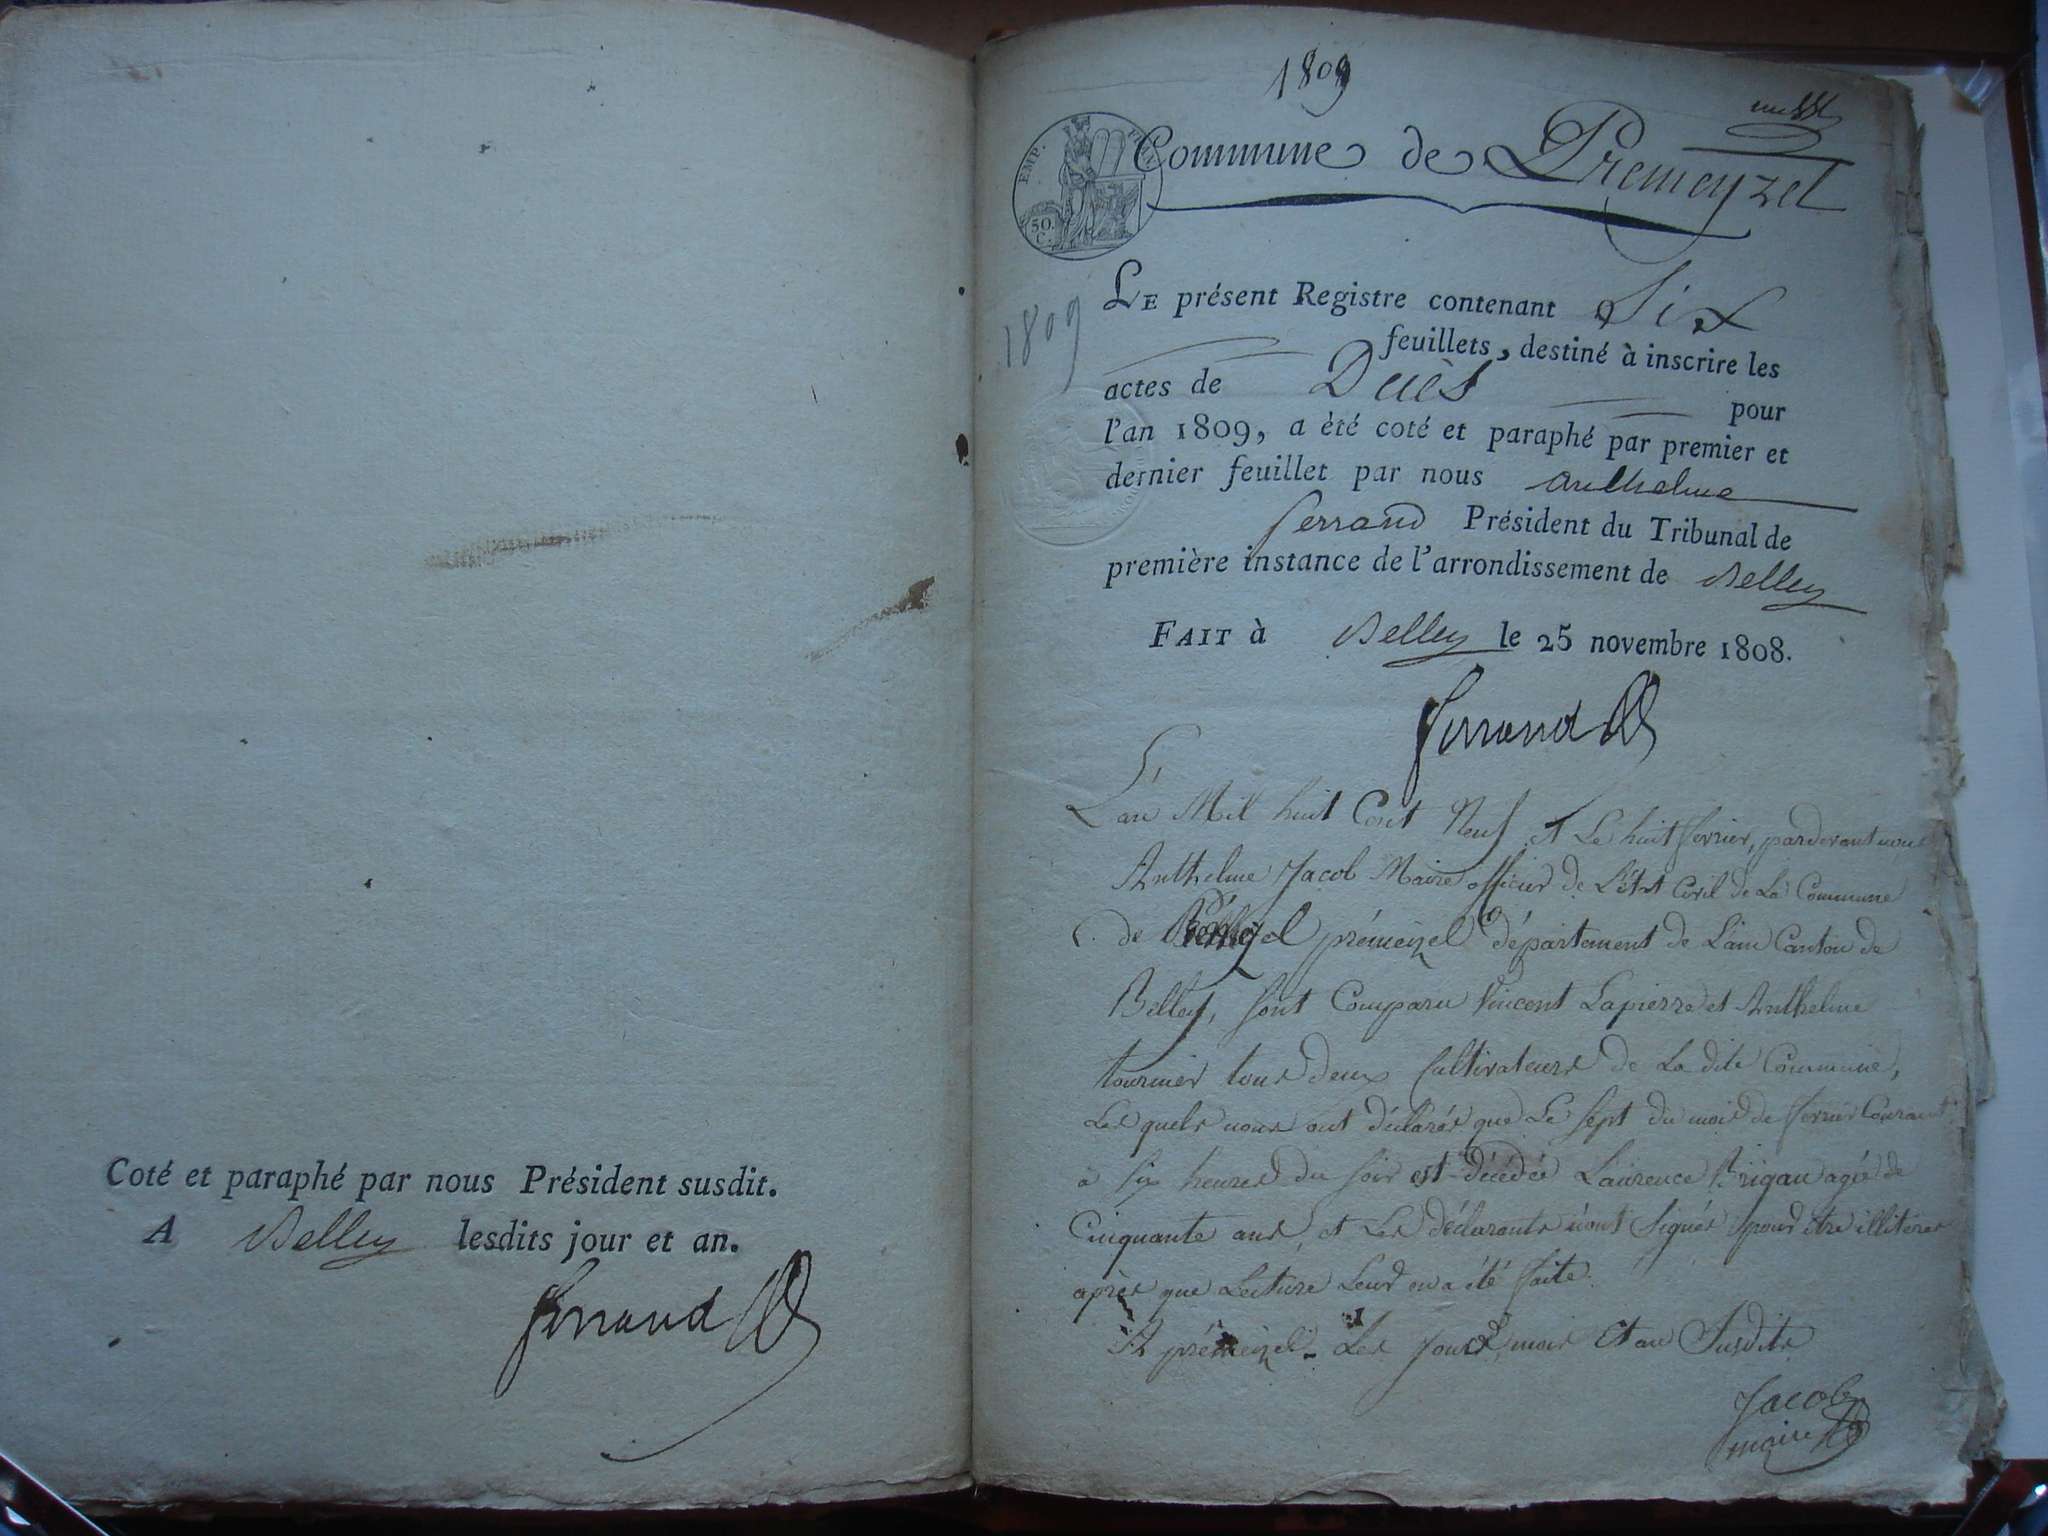 Coté et paraphé par nous Président susdit.
A Belley lesdits jour et an.
Ferrand
1809
Commune de Premeyzel
EMP.
50.
C.
1809
LE présent Registre contenant Six
feuillets, destiné à inscrire les
actes de Décès pour
l'an 1809, a été coté et paraphé par premier et
dernier feuillet par nous Anthelme
ferrand Président du Tribunal de
première instance de l'arrondissement de Belley
FAIT à Belley le 25 novembre 1808.
Ferrand
L'an Mil huit Cent Neuf et Le huit fevrier, pardevant nous
Anthelme Jacob Maire officier de L'état Civil de La Commune
de prémeizel département de L'ain Canton de
Belley, sont Comparu Vincent Lapierre et Anthelme
tournier tous deux Cultivateurs de La dite Commune,
Les quels nous ont déclarés que Le sept du mois de fevrier Courant
à six heures du soir est décédée Laurence Brigau agée de
Cinquante ans, et Les déclarants n'ont signés pour être illiterés
après que Lecture Leur en a été faite.
A prémeizel Les jour, mois Et an Susdits
Jacob
maire